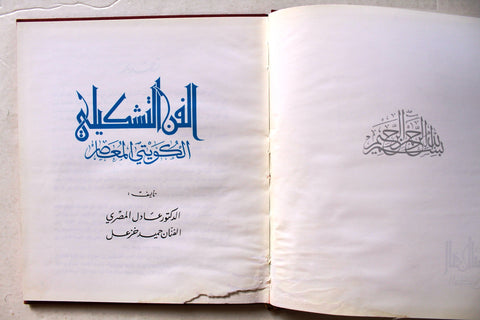 الفن التشكيلي
الكويتي المعاصر
تأليف:
الدكتور عادل المصري
الفنان حميد خزعل
بسم الله الرحمن الرحيم